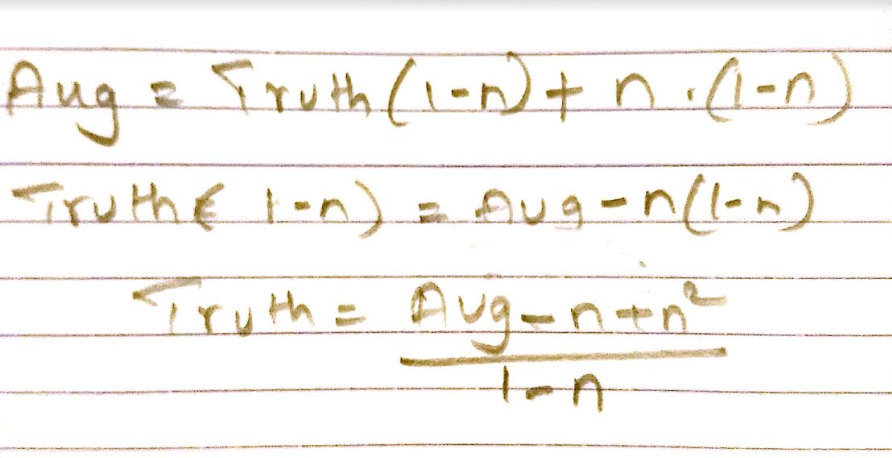 Aug = Truth (1-n) + n . (1-n)
Truth ( 1-n) = Aug - n(1-n)
Truth = Aug - n + n²
1-n